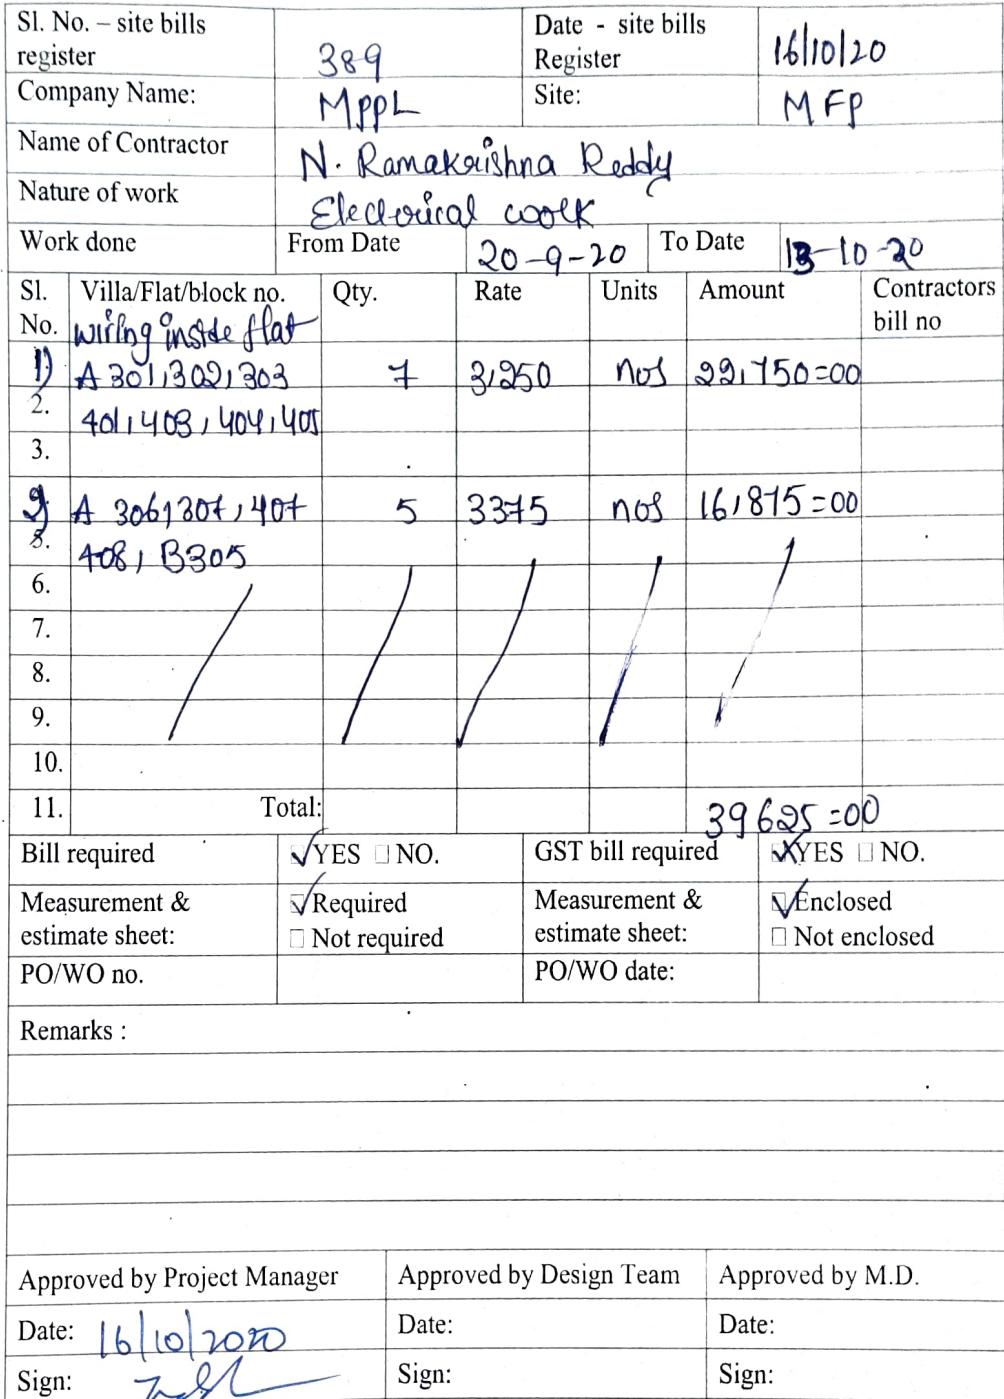 Sl. No. – site bills register 389 Date - site bills Register 16/10/20
Company Name: MPPL Site: MFP
Name of Contractor N. Ramakrishna Reddy
Nature of work Electorical woolk
Work done From Date 20-9-20 To Date 13-10-20
Sl. No. Villa/Flat/block no. Qty. Rate Units Amount Contractors bill no
wiring inside flat
1) A 301,302,303 7 3,250 nos 22,750=00
2. 401,403,404,405
3.
2) A 306,307,407 5 3375 nos 16,875=00
5. 408, B305
6.
7.
8.
9.
10.
11. Total: 39625=00
Bill required YES NO. GST bill required YES NO.
Measurement & estimate sheet: Required Measurement & estimate sheet: Enclosed
Not required Not enclosed
PO/WO no. PO/WO date:
Remarks :
Approved by Project Manager Approved by Design Team Approved by M.D.
Date: 16/10/2020 Date: Date:
Sign: Sign: Sign: